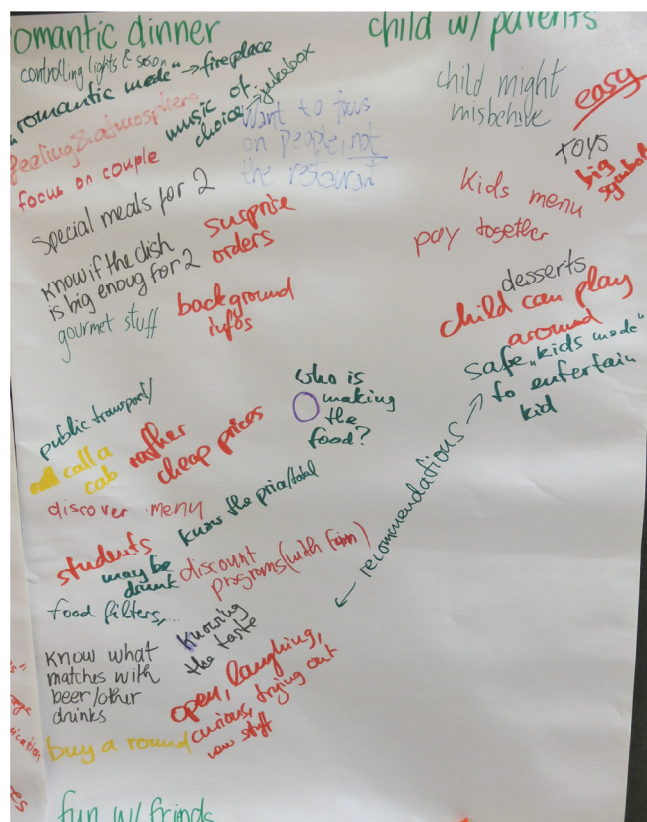 romantic dinner
controlling lights &
"romantic mode" → fireplace
feeling & atmosphere
music of
choice → jukebox
focus on couple
Want to focus
on people, not
the restaurant
special meals for 2
surprise
orders
know if the dish
is big enoug for 2
gourmet stuff
background
infos
child w/ parents
child might
misbehive
easy
TOYS
big
symbols
Kids menu
pay together
desserts
child can play
around
safe "kids mode"
to entertain
kid
who is
making
the
food?
public transport/
call a
cab
rather
cheap prices
discover menu
know the price/total
students
may be
drunk
discount
programs (with
← recommendations →
food filters,...
knowing
the taste
know what
matches with
beer/other
drinks
open, laughing,
curious, trying out
new stuff
buy a round
fun w/ frinds